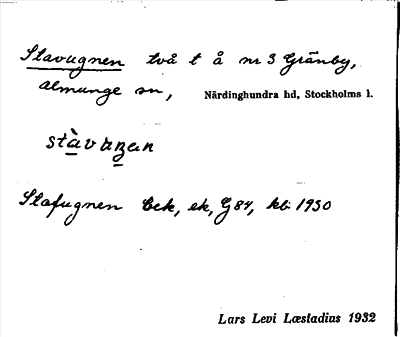 Stavugnen två t å nr 3 Gränby,
Almunge sn, Närdinghundra hd, Stockholms l.
stàvuŋən
Stafugnen bek, ek, G 84, kb: 1930
Lars Levi Læstadius 1932